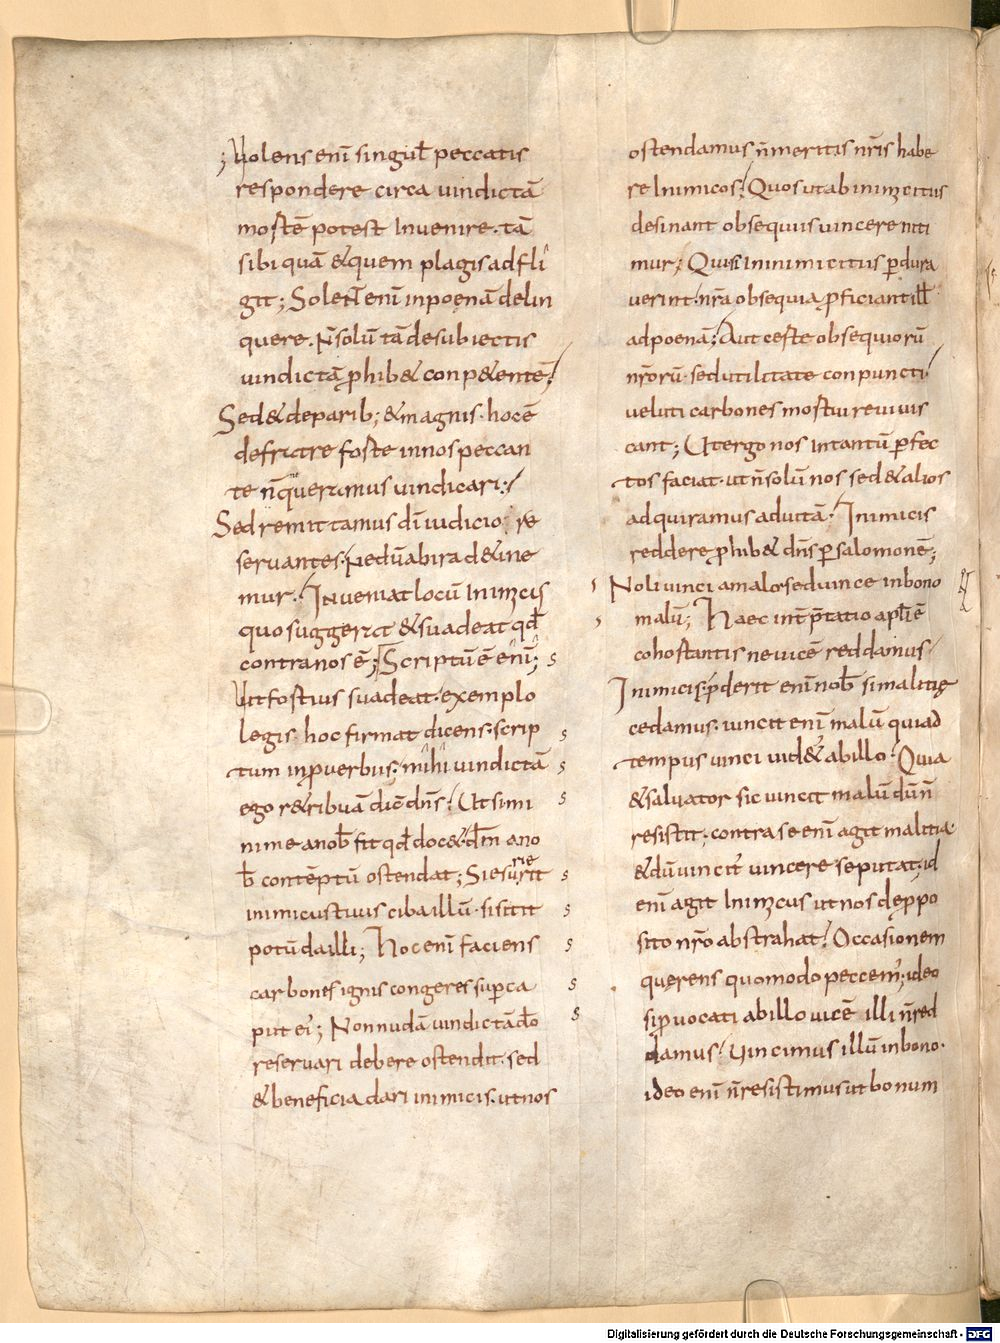 ; Nolens enī singul̄ peccatis
respondere circa uindictā
mortē potest Inuenire· tā
sibi quā &quem plagis adfli
git; Sol&̄ enī inpoenā delin
quere· N̄ solū tā de subiectis
uindictā ꝓhib& conp&entē;
Sed&deparib; &magnis· hoc ē
defratre forte innospeccan
te n̄ queramus uindicari;
Sedremittamus dī iudicio re
seruantes· Nedū abira d&ine
mur· Inueniat locū Inimicis
quo suggerat &suadeat qd̄
contranos ē; Scriptū ē enī; s
Ut fortius suadeat· exemplo
legis hoc firmat dicens· scrip s
tum inꝓuerbiis; mihi uindictā s
ego r&ribuā dic̄ dn̄s; Ut simi s
nime anob̄ fit qd̄ doc&· dm̄ ano
b̄ contēptū ostendat; Siesurierit s
inimicus tuus ciba illū· si sitit s
potū da illi; Hoc enī faciens s
carbones ignis congeres suꝑca s
put ei'; Non nudā uindictā do s
reseruari debere ostendit· sed
&beneficia dari inimicis· ut nos
ostendamus n̄ meritis nr̄is habe
re Inimicos; Quos ut ab inimicitiis
desinant obsequiis uincere niti
mur; Qui si In inimicitiis ꝑdura
uerint· nr̄a obsequia ꝓficiant ill̄
adpoenā; Aut certe obsequiorū
nr̄orū· sedulitate conpuncti
ueluti carbones mortui reuiuis
cant; Ut ergo nos Intantū ꝑfec
tos faciat· ut n̄ solū nos sed &alios
adquiramus ad uitā· Inimicis
reddere ꝓhib& dn̄s ꝑ salomonē;
Noli uinci amalo· sed uince inbono
malū; Haec int̄ꝑtatio apl̄i ē
cohortantis ne uicē reddamus
Inimicis· ꝓderit enī nob̄ si malitię
cedamus· uincit enī malū qui ad
tempus uinci uid& ab illo; Quia
&saluator sic uincit malū dū n̄
resistit; contra se enī agit malitia·
&dū uincit' uincere se putat· id
enī agit Inimicus ut nos deꝓpo
sito nr̄o abstrahat; Occasionem
querens quomodo peccem'; ideo
si ꝓuocati ab illo uicē illi n̄ red
damus· Uincimus illū inbono·
ideo enī n̄ resistimus ut bonum
Digitalisierung gefördert durch die Deutsche Forschungsgemeinschaft - DFG